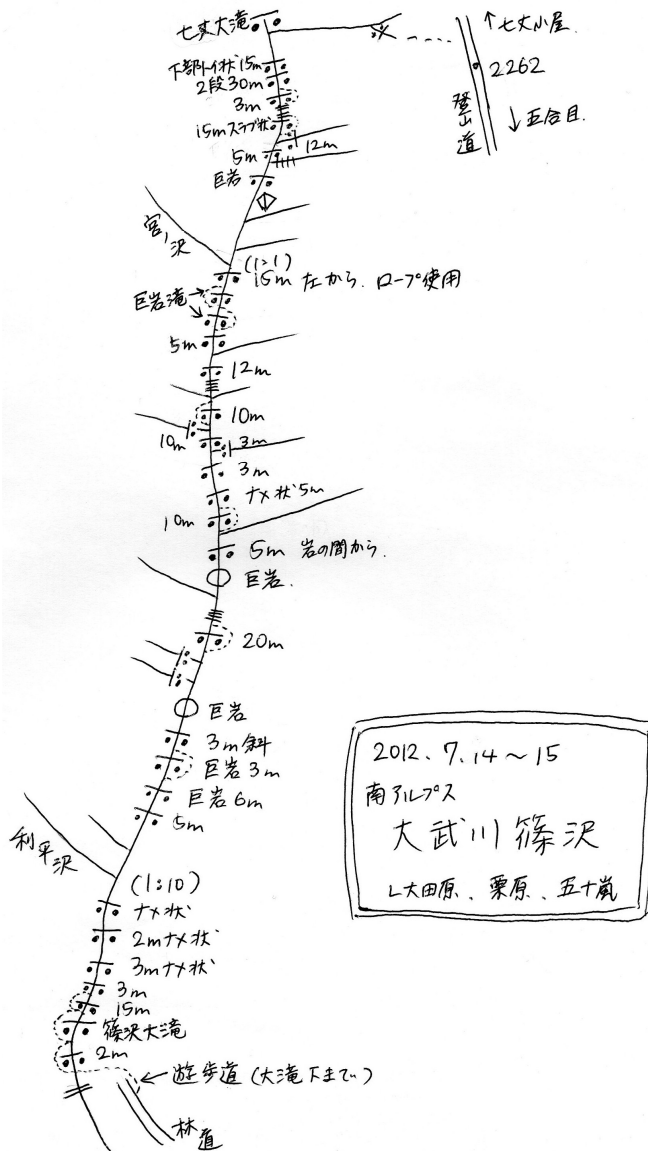 七丈大滝
↑七丈小屋
2262
登山道
↓五合目
下部トイ状15m
2段30m
3m
15mスラブ状
12m
5m
巨岩
宮ノ沢
(1:1)
15m 左から、ロープ使用
巨岩滝
5m
12m
10m
10m
3m
3m
ナメ状5m
10m
5m 岩の間から、
巨岩、
20m
巨岩
3m斜
巨岩3m
巨岩6m
5m
利平沢
(1:10)
ナメ状
2mナメ状
3mナメ状
3m
15m
篠沢大滝
2m
←遊歩道(大滝下まで)
林道
2012.7.14〜15
南アルプス
大武川篠沢
L大田原、栗原、五十嵐